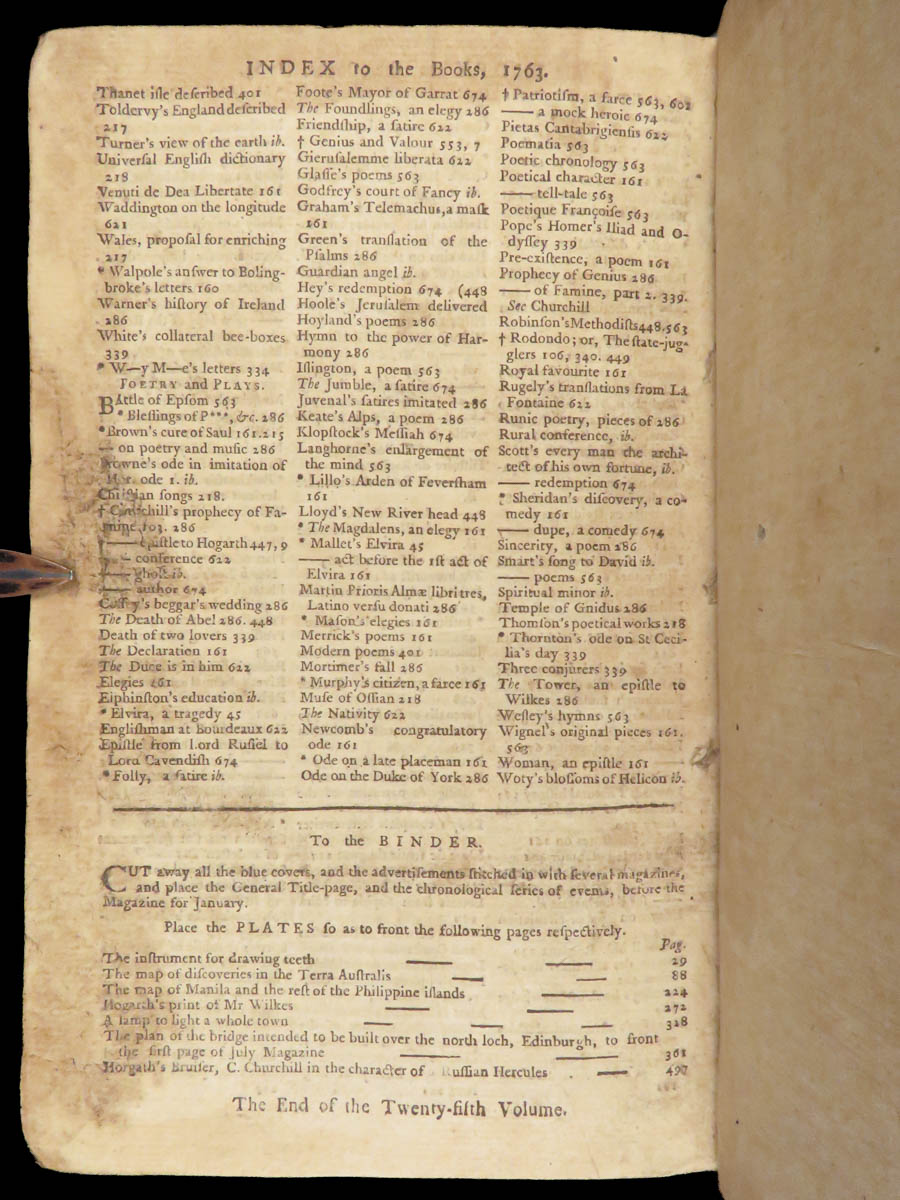 INDEX to the Books, 1763.
Thanet iſle deſcribed 401
Toldervy's England deſcribed
217
Turner's view of the earth ib.
Univerſal Engliſh dictionary
218
Venuti de Dea Libertate 161
Waddington on the longitude
621
Wales, propoſal for enriching
217
* Walpole's anſwer to Boling-
broke's letters 160
Warner's hiſtory of Ireland
286
White's collateral bee-boxes
339
* W—y M—e's letters 334
POETRY and PLAYS.
BAttle of Epſom 563
* Bleſſings of P***, &c. 286
*Brown's cure of Saul 161.215
— on poetry and muſic 286
Browne's ode in imitation of
Hor. ode 1. ib.
Chriſtian ſongs 218.
† Churchill's prophecy of Fa-
mine, 103. 286
†—— epiſtle to Hogarth 447, 9
—— conference 622
†—— ghoſt ib.
—— author 674
Coffey's beggar's wedding 286
The Death of Abel 286. 448
Death of two lovers 339
The Declaration 161
The Duce is in him 622
Elegies 161
Elphinſton's education ib.
* Elvira, a tragedy 45
Engliſhman at Bourdeaux 622
Epiſtle from Lord Ruſſel to
Lord Cavendiſh 674
*Folly, a ſatire ib.
Foote's Mayor of Garrat 674
The Foundlings, an elegy 286
Friendſhip, a ſatire 622
† Genius and Valour 553, 7
Gieruſalemme liberata 622
Glaſſe's poems 563
Godfrey's court of Fancy ib.
Graham's Telemachus, a maſk
161
Green's tranſlation of the
Pſalms 286
Guardian angel ib.
Hey's redemption 674 (448
Hoole's Jeruſalem delivered
Hoyland's poems 286
Hymn to the power of Har-
mony 286
Iſlington, a poem 563
The Jumble, a ſatire 674
Juvenal's ſatires imitated 286
Keate's Alps, a poem 286
Klopſtock's Meſſiah 674
Langhorne's enlargement of
the mind 563
* Lillo's Arden of Feverſham
161
Lloyd's New River head 448
* The Magdalens, an elegy 161
* Mallet's Elvira 45
—— act before the 1ſt act of
Elvira 161
Martin Prioris Almæ libri tres,
Latino verſu donati 286
* Maſon's elegies 161
Merrick's poems 161
Modern poems 401
Mortimer's fall 286
* Murphy's citizen, a farce 161
Muſe of Oſſian 218
The Nativity 622
Newcomb's congratulatory
ode 161
* Ode on a late placeman 161
Ode on the Duke of York 286
† Patriotiſm, a farce 563, 602
—— a mock heroic 674
Pietas Cantabrigienſis 622
Poematia 563
Poetic chronology 563
Poetical character 161
—— tell-tale 563
Poetique Françoiſe 563
Pope's Homer's Iliad and O-
dyſſey 339
Pre-exiſtence, a poem 161
Prophecy of Genius 286
—— of Famine, part 2. 339.
See Churchill
Robinſon's Methodiſts 448, 563
† Rodondo; or, The ſtate-jug-
glers 106, 340. 449
Royal favourite 161
Rugely's tranſlations from La
Fontaine 622
Runic poetry, pieces of 286
Rural conference, ib.
Scott's every man the archi-
tect of his own fortune, ib.
—— redemption 674
* Sheridan's diſcovery, a co-
medy 161
—— dupe, a comedy 674
Sincerity, a poem 286
Smart's ſong to David ib.
—— poems 563
Spiritual minor ib.
Temple of Gnidus 286
Thomſon's poetical works 218
* Thornton's ode on St Ceci-
lia's day 339
Three conjurers 339
The Tower, an epiſtle to
Wilkes 286
Weſley's hymns 563
Wignel's original pieces 161.
563
Woman, an epiſtle 161
Woty's bloſſoms of Helicon ib.
To the BINDER.
CUT away all the blue covers, and the advertiſements ſtitched in with ſeveral magazines,
and place the General Title-page, and the chronological ſeries of events, before the
Magazine for January.
Place the PLATES ſo as to front the following pages reſpectively.
Pag.
The inſtrument for drawing teeth —— —— 29
The map of diſcoveries in the Terra Auſtralis —— —— 88
The map of Manila and the reſt of the Philippine iſlands —— 224
Hogarth's print of Mr Wilkes —— —— 272
A lamp to light a whole town —— —— —— 328
The plan of the bridge intended to be built over the north loch, Edinburgh, to front
the firſt page of July Magazine —— —— 361
Horgath's Bruiſer, C. Churchill in the character of Ruſſian Hercules . —— 497
The End of the Twenty-fifth Volume.